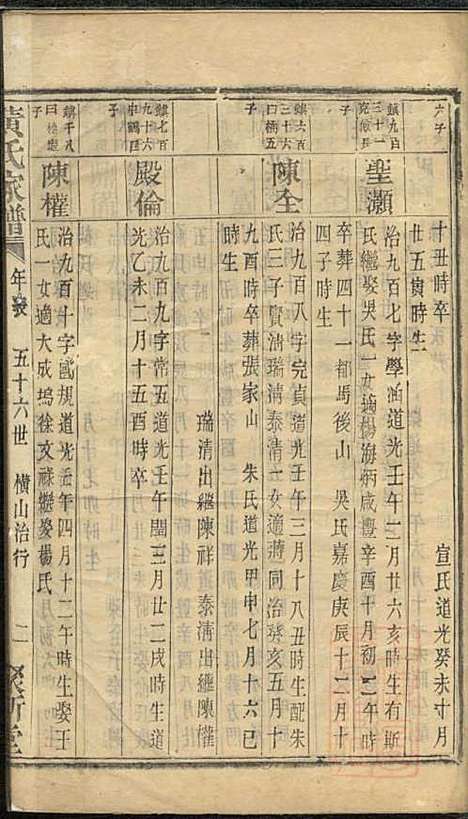 六子
十丑時卒　宣氏道光癸未十月
廿五寅時生
鎮九百
三十一
子
聖灝
治九百七字學涵道光壬午二月廿六亥時生有斯
氏繼娶吳氏一女適楊海炳咸豐辛酉十月初二午時
卒葬四十一都馬後山　吳氏嘉慶庚辰十二月十
四子時生
鎮六百
三十六
曰橋五
子
陳全
治九百八字完貞道光壬午三月十八丑時生配朱
氏三子寳清瑞清泰清一女適蔣同治癸亥五月十
九酉時卒葬張家山　朱氏道光甲申七月十六巳
時生
瑞清出繼陳祥　泰清出繼陳權
鎮七百
九十六
子
殿倫
治九百九字常五道光壬午閏三月廿二戌時生道
光乙未二月十五酉時卒
鎮千八
子
陳權
治九百十字國規道光壬午四月十二午時生娶王
氏一女適大成塢徐文祿繼娶楊氏
黄氏家譜
五十六世　橫山治行
二